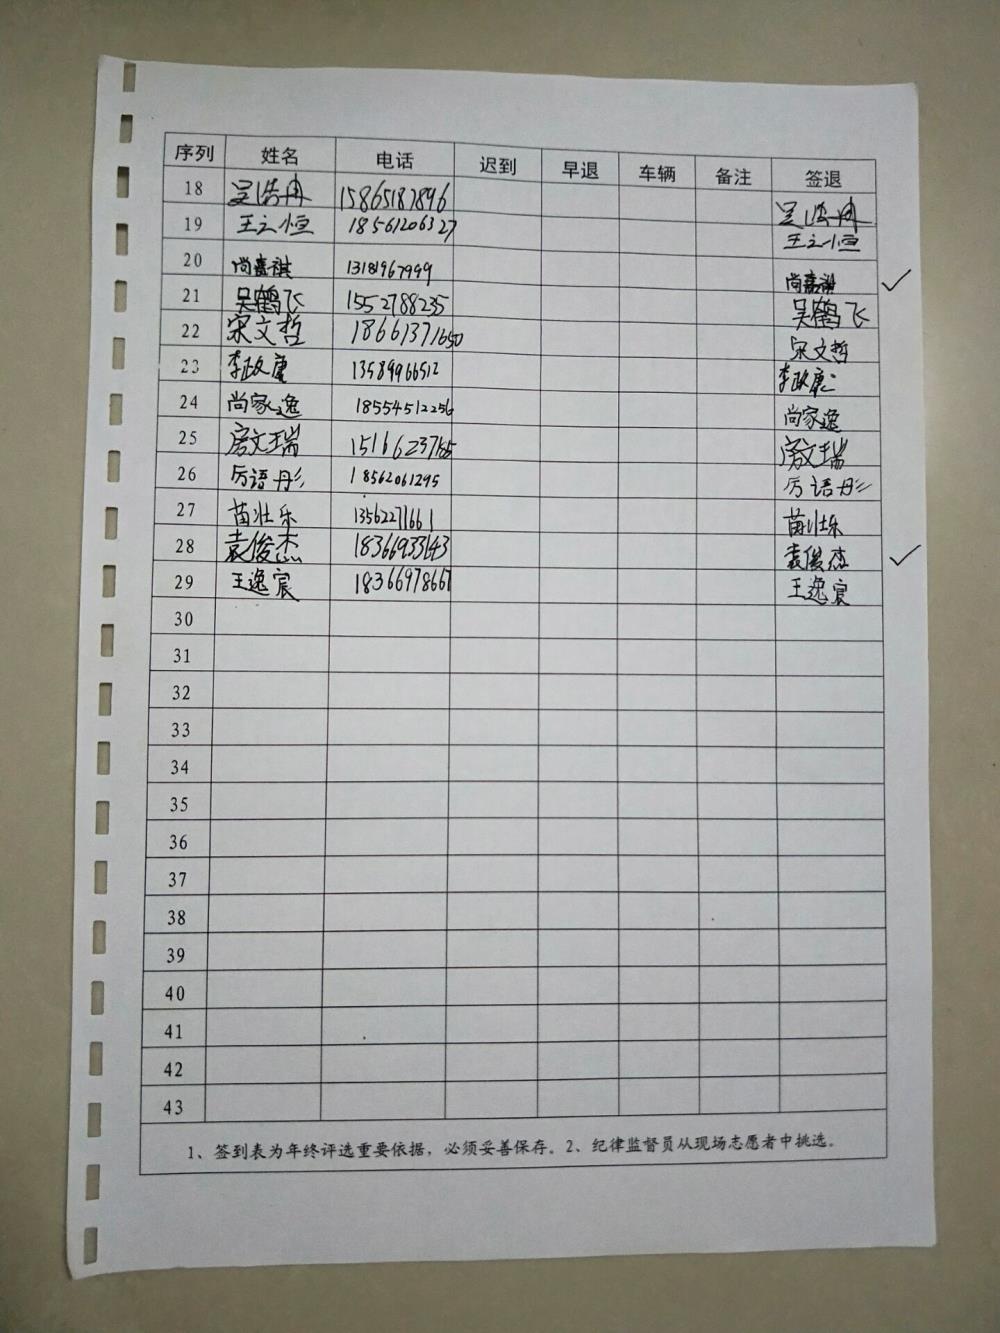 序列 姓名 电话 迟到 早退 车辆 备注 签退
18 吴浩冉 15865187896 吴浩冉
19 王之恒 18561206327 王之恒
20 尚嘉祺 13181967999 尚嘉祺 ✓
21 吴鹤飞 1552788235 吴鹤飞
22 宋文哲 18661371650 宋文哲
23 李政康 13589966512 李政康
24 尚家逸 18554512256 尚家逸
25 房文瑞 房文瑞
26 厉语彤 18562061295 厉语彤
27 苗壮乐 13562271661 苗壮乐
28 袁俊杰 18366933143 袁俊杰 ✓
29 王逸宸 18366978667 王逸宸
30
31
32
33
34
35
36
37
38
39
40
41
42
43
1、签到表为年终评选重要依据，必须妥善保存。2、纪律监督员从现场志愿者中挑选。